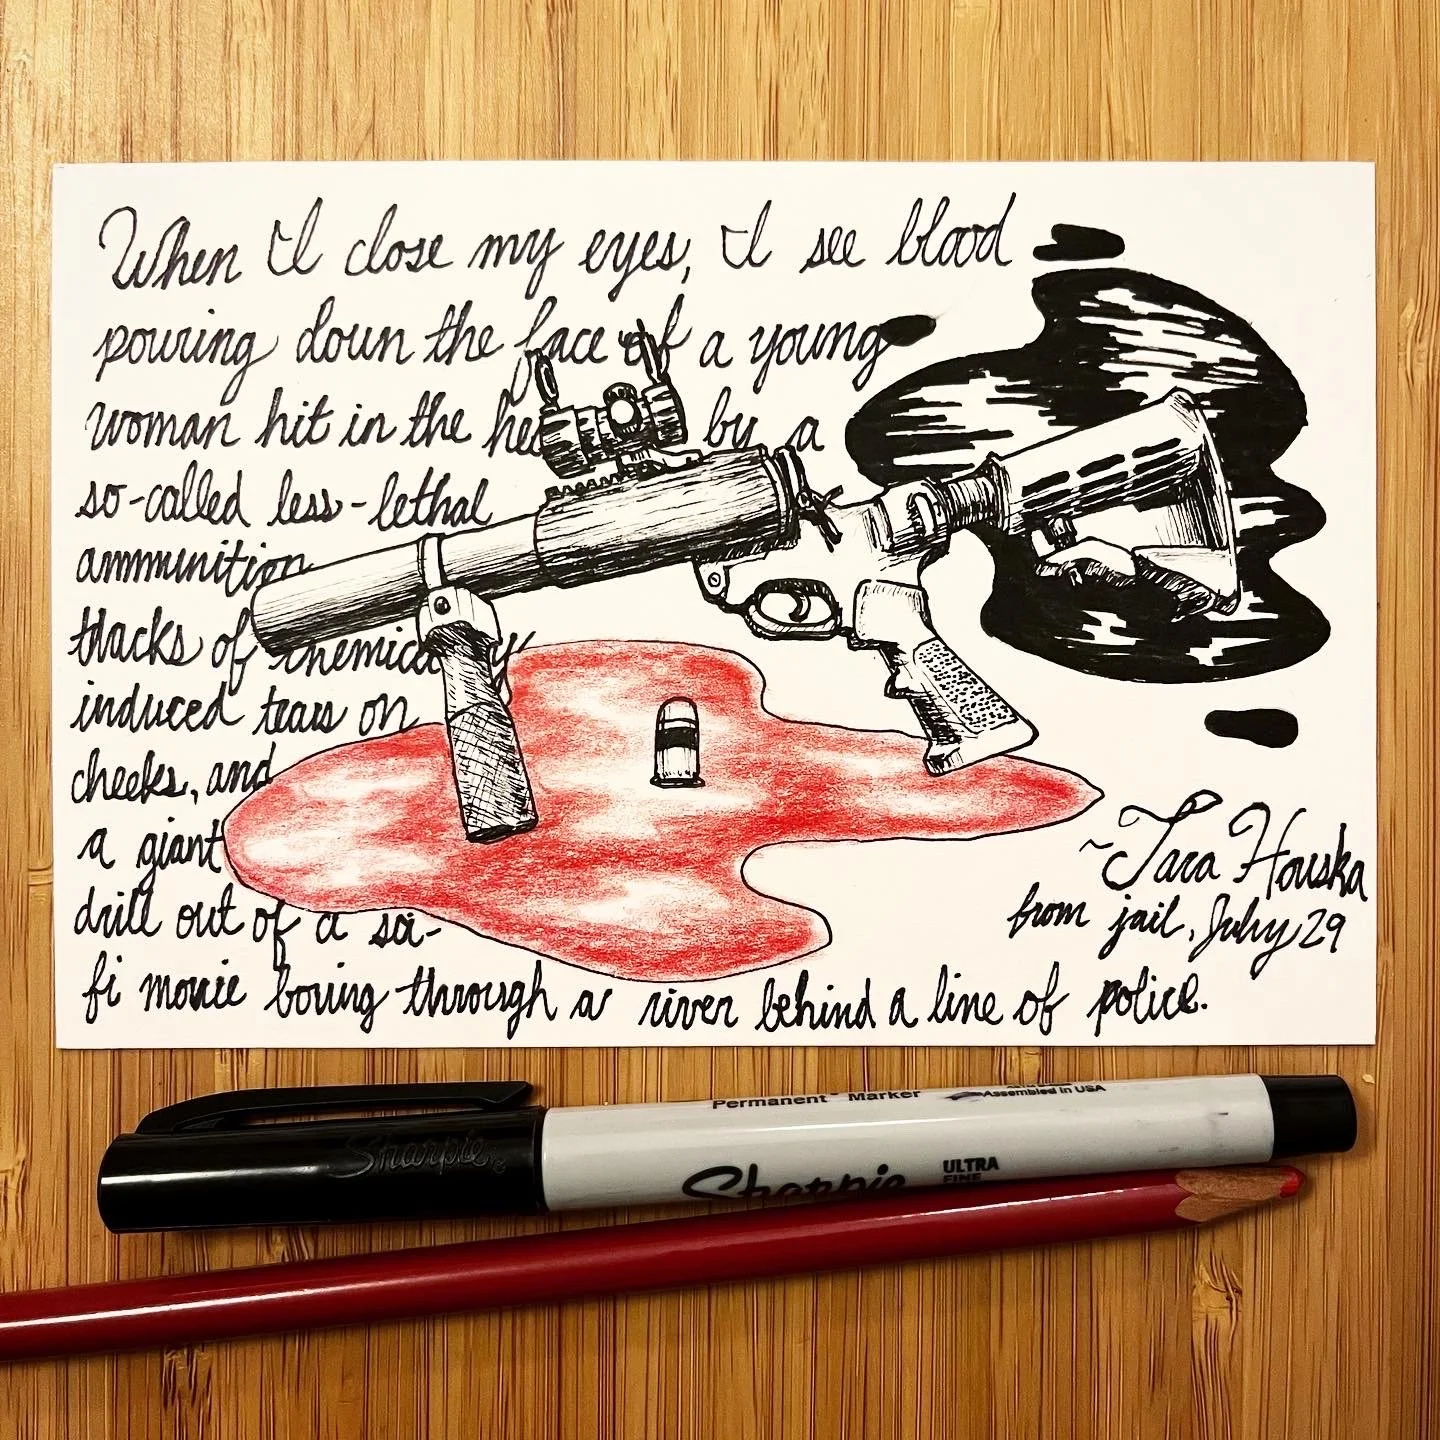 When I close my eyes, I see blood
pouring down the face of a young
woman hit in the by a
so-called less-lethal
ammunition
tracks of chemically
induced tears on
cheeks, and
a giant
drill out of a sci-
fi movie boring through a river behind a line of police.
~Tara Houska
from jail, July 29
Sharpie
Permanent Marker
Assembled in USA
Sharpie
ULTRA
FINE